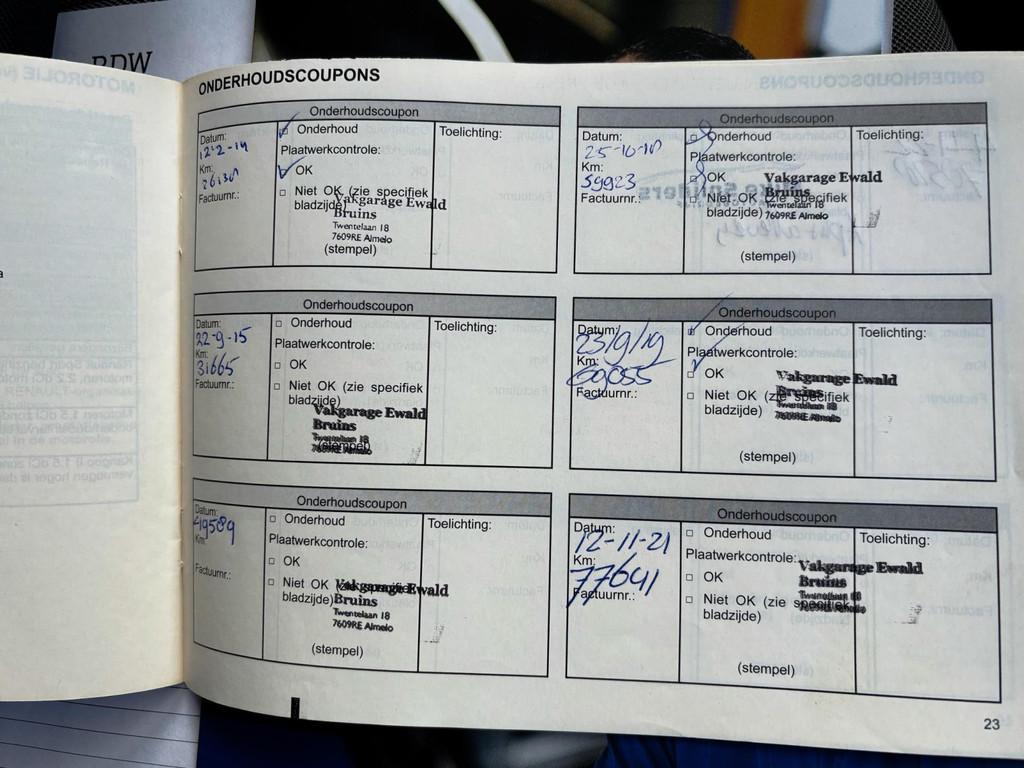 RDW
ONDERHOUDSCOUPONS
Onderhoudscoupon
Datum:
12-2-14
Km:
Factuurnr.:
Onderhoud
Plaatwerkcontrole:
OK
Niet OK (zie specifiek
bladzijde)
Vakgarage Ewald
Bruins
Twentelaan 18
7609RE Almelo
(stempel)
Toelichting:
Onderhoudscoupon
Datum:
22-9-15
Km:
31665
Factuurnr.:
Onderhoud
Plaatwerkcontrole:
OK
Niet OK (zie specifiek
bladzijde)
Vakgarage Ewald
Bruins
Twentelaan 18
7609RE Almelo
(stempel)
Toelichting:
Onderhoudscoupon
Datum:
49589
Km:
Factuurnr.:
Onderhoud
Plaatwerkcontrole:
OK
Niet OK (zie specifiek
bladzijde)
Vakgarage Ewald
Bruins
Twentelaan 18
7609RE Almelo
(stempel)
Toelichting:
Onderhoudscoupon
Datum:
Km:
59923
Factuurnr.:
Onderhoud
Plaatwerkcontrole:
OK
Niet OK (zie specifiek
bladzijde)
Vakgarage Ewald
Bruins
Twentelaan 18
7609RE Almelo
(stempel)
Toelichting:
Onderhoudscoupon
Datum:
23/9/19
Km:
69055
Factuurnr.:
Onderhoud
Plaatwerkcontrole:
OK
Niet OK (zie specifiek
bladzijde)
Vakgarage Ewald
Bruins
Twentelaan 18
7609RE Almelo
(stempel)
Toelichting:
Onderhoudscoupon
Datum:
12-11-21
Km:
77641
Factuurnr.:
Onderhoud
Plaatwerkcontrole:
OK
Niet OK (zie specifiek
bladzijde)
Vakgarage Ewald
Bruins
Twentelaan 18
7609RE Almelo
(stempel)
Toelichting:
23